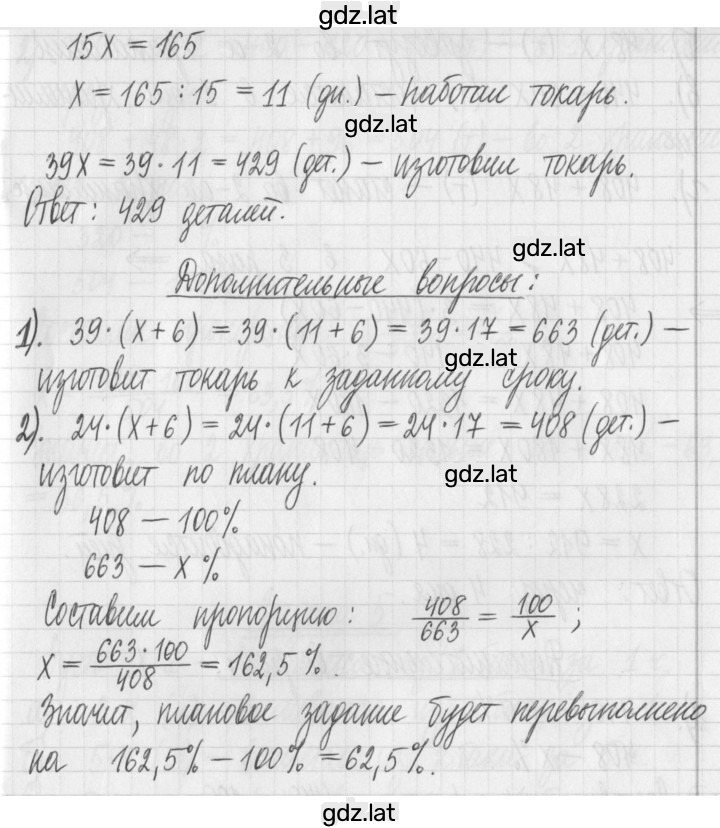 gdz.lat
15x = 165
x = 165 : 15 = 11 (дн.) – работал токарь.
gdz.lat
39x = 39 · 11 = 429 (дет.) – изготовил токарь.
Ответ: 429 деталей.
gdz.lat
Дополнительные вопросы:
1). 39 · (x + 6) = 39 · (11 + 6) = 39 · 17 = 663 (дет.) –
gdz.lat
изготовит токарь к заданному сроку.
2). 24 · (x + 6) = 24 · (11 + 6) = 24 · 17 = 408 (дет.) –
изготовит по плану.
gdz.lat
408 – 100%
663 – x %
Составим пропорцию: 408/663 = 100/x ;
x = 663 · 100/408 = 162,5 %.
gdz.lat
Значит, плановое задание будет перевыполнено
на 162,5% – 100% = 62,5%.
gdz.lat